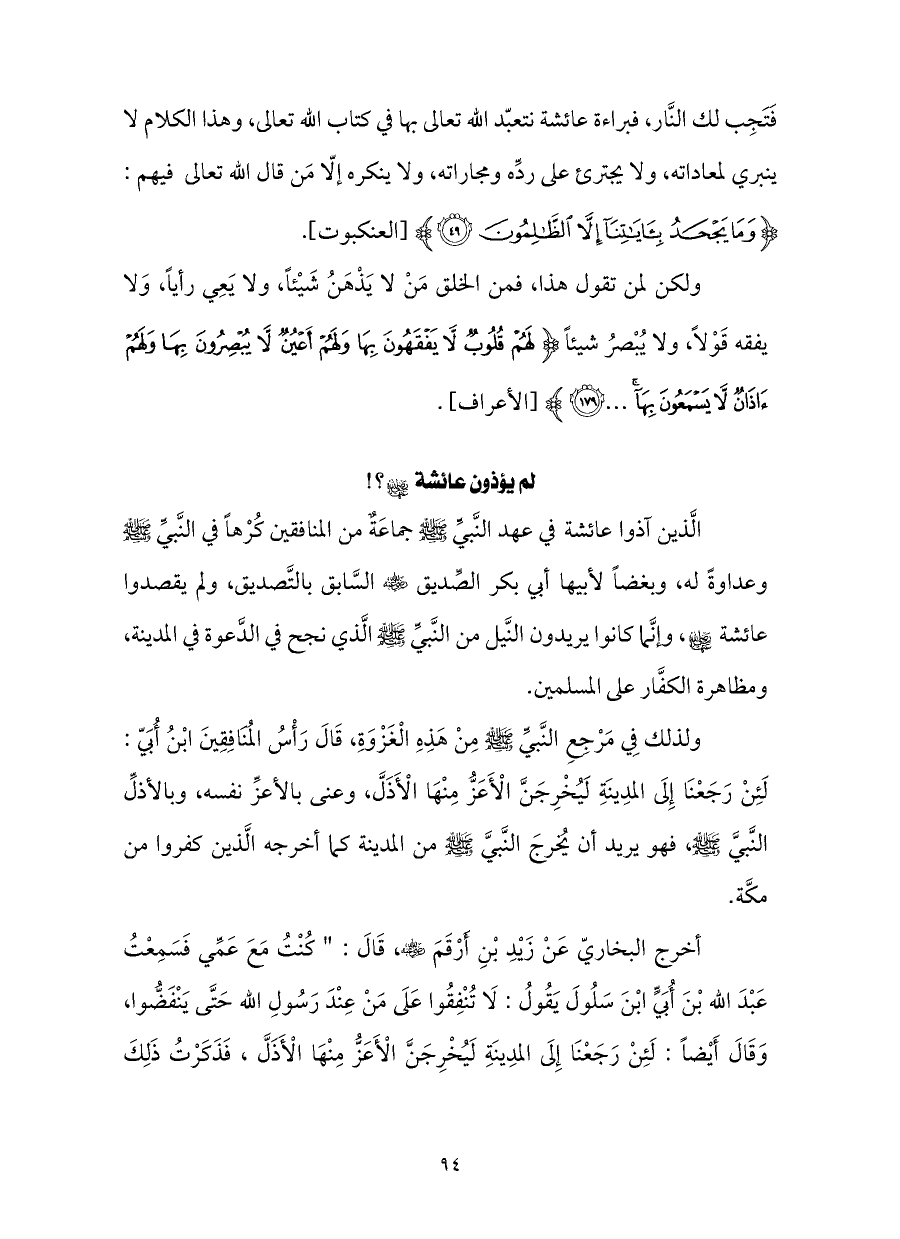 فَتَجِب لك النَّار، فبراءة عائشة نتعبّد الله تعالى بها في كتاب الله تعالى، وهذا الكلام لا
ينبري لمعاداته، ولا يجترئ على ردِّه ومجاراته، ولا ينكره إلّا مَن قال الله تعالى فيهم :
﴿ وَمَا يَجْحَدُ بِـَٔايَـٰتِنَآ إِلَّا ٱلظَّـٰلِمُونَ ٤٩ ﴾ [العنكبوت].
ولكن لمن تقول هذا، فمن الخلق مَنْ لا يَذْهَنُ شَيْئاً، ولا يَعِي رأياً، وَلا
يفقه قَوْلاً، ولا يُبْصرُ شيئاً ﴿ لَهُمْ قُلُوبٌ لَّا يَفْقَهُونَ بِهَا وَلَهُمْ أَعْيُنٌ لَّا يُبْصِرُونَ بِهَا وَلَهُمْ
ءَاذَانٌ لَّا يَسْمَعُونَ بِهَآ ۚ ... ١٧٩ ﴾ [الأعراف] .
لم يؤذون عائشة ﵂ ؟!
الَّذين آذوا عائشة في عهد النَّبيِّ ﷺ جماعَةٌ من المنافقين كُرْهاً في النَّبيِّ ﷺ
وعداوةً له، وبغضاً لأبيها أبي بكر الصِّديق ﵁ السَّابق بالتَّصديق، ولم يقصدوا
عائشة ﵂ ، وإنَّما كانوا يريدون النَّيل من النَّبيِّ ﷺ الَّذي نجح في الدَّعوة في المدينة،
ومظاهرة الكفَّار على المسلمين.
ولذلك فِي مَرْجِعِ النَّبيِّ ﷺ مِنْ هَذِهِ الْغَزْوَةِ، قَالَ رَأْسُ المُنَافِقِينَ ابْنُ أُبَيّ :
لَئِنْ رَجَعْنَا إِلَى المدِينَةِ لَيُخْرِجَنَّ الْأَعَزُّ مِنْهَا الْأَذَلَّ، وعنى بالأعزِّ نفسه، وبالأذلِّ
النَّبيَّ ﷺ، فهو يريد أن يُخرجَ النَّبيَّ ﷺ من المدينة كما أخرجه الَّذين كفروا من
مكَّة.
أخرج البخاريّ عَنْ زَيْدِ بْنِ أَرْقَمَ ﵁، قَالَ : " كُنْتُ مَعَ عَمِّي فَسَمِعْتُ
عَبْدَ الله بْنَ أُبَيٍّ ابْنَ سَلُولَ يَقُولُ : لَا تُنْفِقُوا عَلَى مَنْ عِنْدَ رَسُولِ الله حَتَّى يَنْفَضُّوا،
وَقَالَ أَيْضاً : لَئِنْ رَجَعْنَا إِلَى المدِينَةِ لَيُخْرِجَنَّ الْأَعَزُّ مِنْهَا الْأَذَلَّ ، فَذَكَرْتُ ذَلِكَ
٩٤